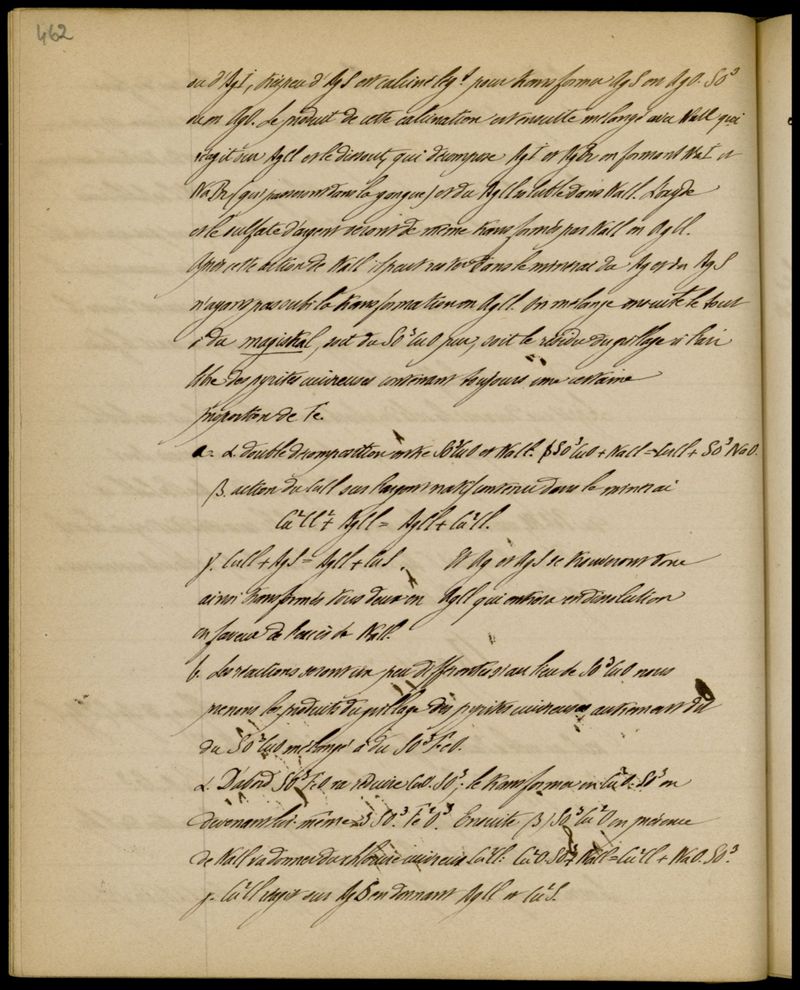 462
ou d'AgI, très peu d'AgS est calciné légt pour transformer AgS en AgO. SO³
ou en AgO. Le produit de cette calcination est ensuite mélangé avec NaCl qui
réagit sur AgCl et le dissout, qui décompose AgI et AgBr en formant NaI et
NaBr (qui passeront dans la gangue) et du AgCl soluble dans NaCl. L'oxyde
et le sulfate d'argent seront de même transformés par NaCl en AgCl.
Après cette action de NaCl il peut rester dans le minerai du Ag et du AgS
n'ayant pas subi la transformation en AgCl. On mélange ensuite le tout
à du magistral, soit du SO³CuO pur, soit le résidu du grillage à l'air
libre des pyrites cuivreuses contenant toujours une certaine
proportion de Fe.
a= α. double décomposition entre SO³CuO et NaCl. SO³CuO + NaCl = CuCl + SO³NaO.
β. action du CuCl sur l'argent natif contenu dans le minerai
Cu²Cl² + AgCl = AgCl + Cu²Cl.
γ. CuCl + AgS = AgCl + CuS. Et Ag et AgS se trouveront donc
ainsi transformés tous deux en AgCl qui entrera en dissolution
en faveur de l'excès de NaCl.
b. Les réactions seront un peu différentes si au lieu de SO³CuO nous
prenons les produits du grillage des pyrites cuivreuses autrement dit
du SO³CuO mélangé à du SO³FeO.
α. D'abord SO³FeO va réduire CuO.SO³; le transformer en Cu²O.SO³ en
devenant lui-même 3 SO³.Fe²O³. Ensuite (β) SO³Cu²O en présence
de NaCl va donner du chlorure cuivreux Cu²Cl. Cu²O.SO³ + NaCl = Cu²Cl + NaO.SO³.
γ. Cu²Cl réagit sur AgS en donnant AgCl et Cu²S.